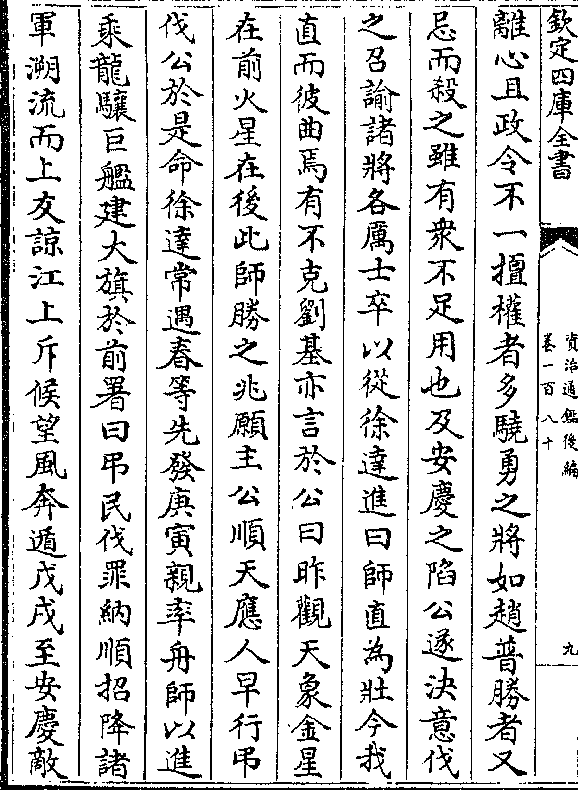 欽定四庫全書
資治通鑑後編
卷一百八十
九
離心且政令不一擅權者多驍勇之將如趙普勝者又
忌而殺之雖有衆不足用也及安慶之陷公遂決意伐
之召諭諸將各厲士卒以從徐達進曰師直為壯今我
直而彼曲焉有不克劉基亦言於公曰昨觀天象金星
在前火星在後此師勝之兆願主公順天應人早行弔
伐公於是命徐達常遇春等先發庚寅親率舟師以進
乘龍驤巨艦建大旗於前署曰弔民伐罪納順招降諸
軍溯流而上友諒江上斥候望風奔遁戊戌至安慶敵